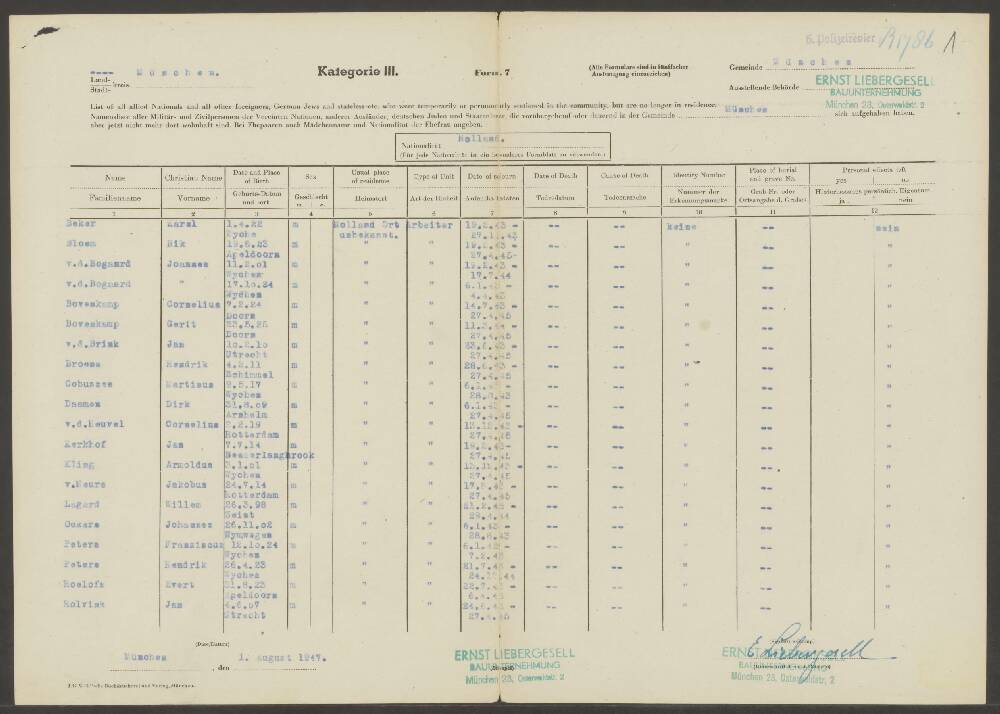 6. Polizeirevier R1786 1
München.
Land- kreis
Stadt-
Kategorie III.
Form. 7
(Alle Formulare sind in fünffacher
Ausfertigung einzureichen)
Gemeinde München
Ausstellende Behörde
ERNST LIEBERGESELL
BAUUNTERNEHMUNG
München 23, Osterwaldstr. 2
List of all allied Nationals and all other foreigners, German Jews and stateless etc. who were temporarily or permanently stationed in the community, but are no longer in residence.
Namensliste aller Militär- und Zivilpersonen der Vereinten Nationen, anderer Ausländer, deutschen Juden und Staatenlosen, die vorübergehend oder dauernd in der Gemeinde München sich aufgehalten haben,
aber jetzt nicht mehr dort wohnhaft sind. Bei Ehepaaren auch Mädchenname und Nationalität der Ehefrau angeben.
Nationalität Holland.
(Für jede Nationalität ist ein besonderes Formblatt zu verwenden)
Name Christian Name Date and Place of Birth Sex Usual place of residence Type of Unit Date of sojourn Date of Death Cause of Death Identity Number Place of burial and grave No. Personal effects left yes no
Familienname Vorname Geburts-Datum und -ort Geschlecht Heimatort Art der Einheit Aufenthaltsdaten Todesdatum Todesursache Nummer der Erkennungsmarke Grab-Nr. oder Ortsangabe d. Grabes Hinterlassenes persönlich. Eigentum ja nein
1 2 3 4 5 6 7 8 9 10 11 12
Beker Karel 1.4.22 m Holland Ort Arbeiter 19.2.43 - -- -- keine -- nein
Wyche unbekannt. 29.11.43
Bloem Rik 19.6.23 m " " -- -- " -- "
Apeldoorn 27.4.45
v.d.Bogaard Joannes 11.2.01 m " " -- -- " -- "
Wychen 17.7.44
v.d.Bogaard " 17.10.24 m " " 6.1.43 - -- -- " -- "
Wychen 4.4.43
Boveskamp Cornelius 7.2.24 m " " 14.7.43 - -- -- " -- "
Doorn 27.4.45
Boveskamp Gerit 23.5.25 m " " -- -- " -- "
Doorn 27.4.45
v.d.Brink Jan 10.2.10 m " " 23.6.43 - -- -- " -- "
Utrecht 27.4.45
Broens Hendrik 4.2.11 m " " 28.6.43 - -- -- " -- "
Schimmel 27.4.45
Cobussen Martinus 9.5.17 m " " -- -- " -- "
Wychen 28.8.43
Daamen Dirk 31.8.09 m " " -- -- " -- "
Arnhelm 27.4.45
v.d.Heuvel Cornelius 2.2.19 m " " 13.12.43 - -- -- " -- "
Rotterdam 27.4.45
Kerkhof Jan 7.7.14 m " " -- -- " -- "
27.4.45
Kling Arnoldus 3.1.01 m " " -- -- " -- "
Wychen 27.4.45
v.Meurs Jakobus 24.7.14 m " " -- -- " -- "
Rotterdam 27.4.45
Lagerd Willem 26.3.98 m " " -- -- " -- "
Zeist
Johannes 26.11.02 m " " 6.1.43 - -- -- " -- "
28.8.43
Peters Franziscus 12.10.24 m " " 6.1.43 - -- -- " -- "
Wychen
Peters Hendrik 26.4.23 m " " -- -- " -- "
Wychen
Roelofs Evert m " " -- -- " -- "
Apeldoorn
Rolvink Jan 4.6.07 m " " 24.6.43 - -- -- " -- "
Utrecht 27.4.45
(Date/Datum)
München, den 1. August 1947.
ERNST LIEBERGESELL
BAUUNTERNEHMUNG
München 23, Osterwaldstr. 2
ERNST LIEBERGESELL
BAUUNTERNEHMUNG
München 23, Osterwaldstr. 2
E. Liebergesell